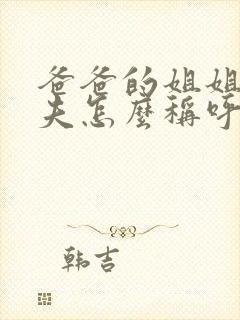 爸爸的姐姐
夫怎麼稱呼
韩吉